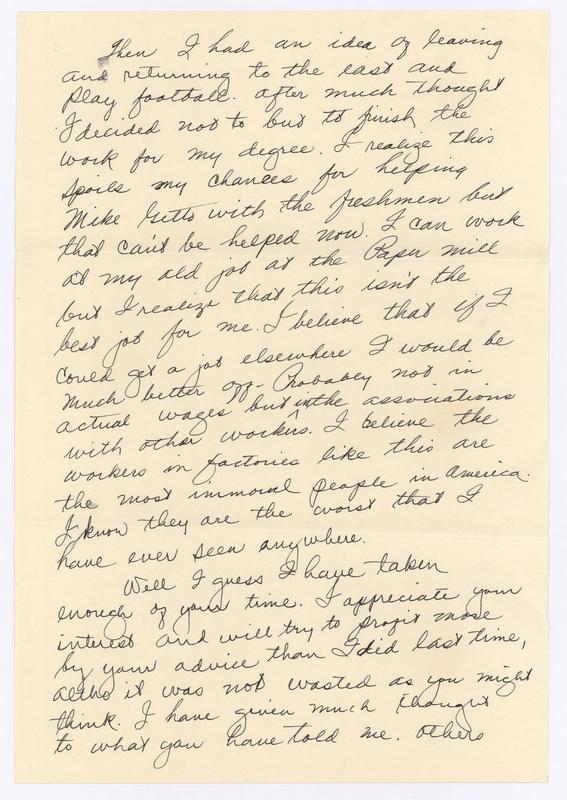 Then I had an idea of leaving
and returning to the east and
play football. After much thought
I decided not to but to finish the
work for my degree. I realize this
spoils my chances for helping
Mike Gitto with the freshmen but
that can't be helped now. I can work
at my old job at the Paper mill
but I realize that this isn't the
best job for me. I believe that if I
could get a job elsewhere I would be
much better off - Probabley not in
actual wages but in the associations
with other workers. I believe the
workers in factories like this are
the most immoral people in America.
I know they are the worst that I
have ever seen anywhere.
Well I guess I have taken
enough of your time. I appreciate your
interest and will try to profit more
by your advice than I did last time,
altho it was not wasted as you might
think. I have given much thought
to what you have told me. Others